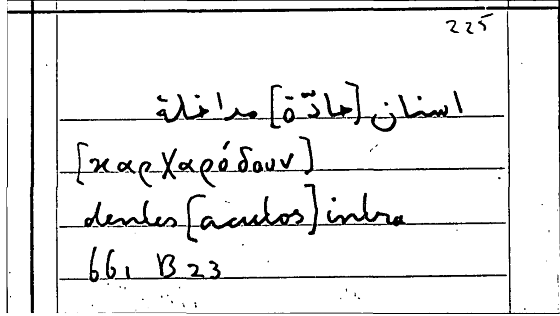 225
اسنان [حادّة] مداخلة
[καρχαρόδουν]
dentes [acutos] intra
661 B 23